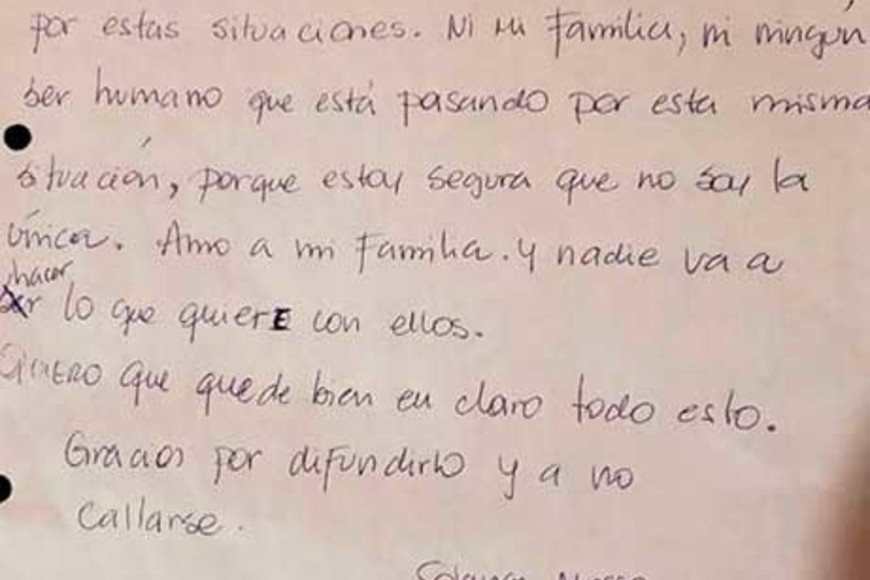 por estas situaciones. Ni mi familia, ni ningún
ser humano que está pasando por esta misma
situación, porque estoy segura que no soy la
única. Amo a mi familia. y nadie va a
hacer
lo que quierE con ellos.
QuiERO que quede bien en claro todo esto.
Gracias por difundirlo y a no
Callarse.